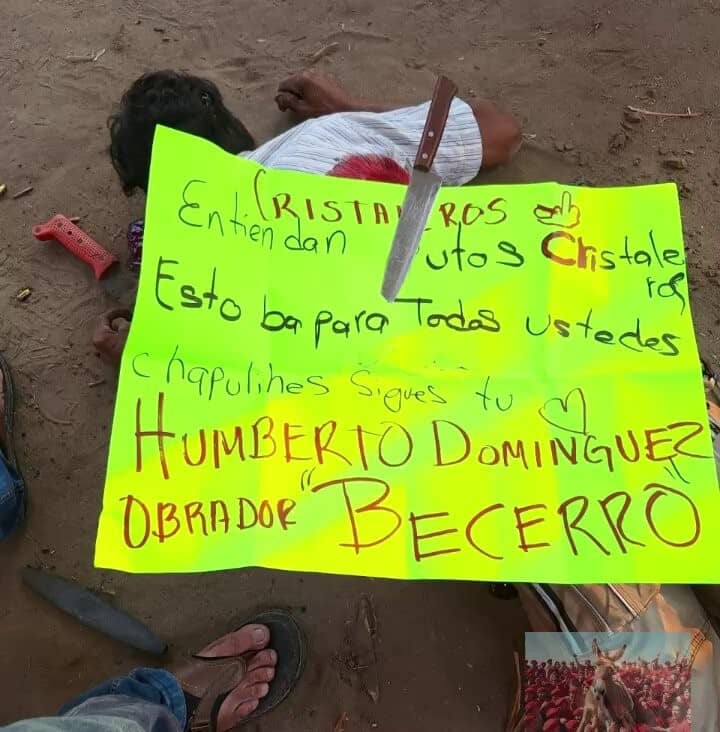 CRISTALEROS
Entiendan Putos Cristaleros
Esto ba para Todas ustedes
chapulines Sigues tu
HUMBERTO DOMINGUEZ
OBRADOR "BECERRO"